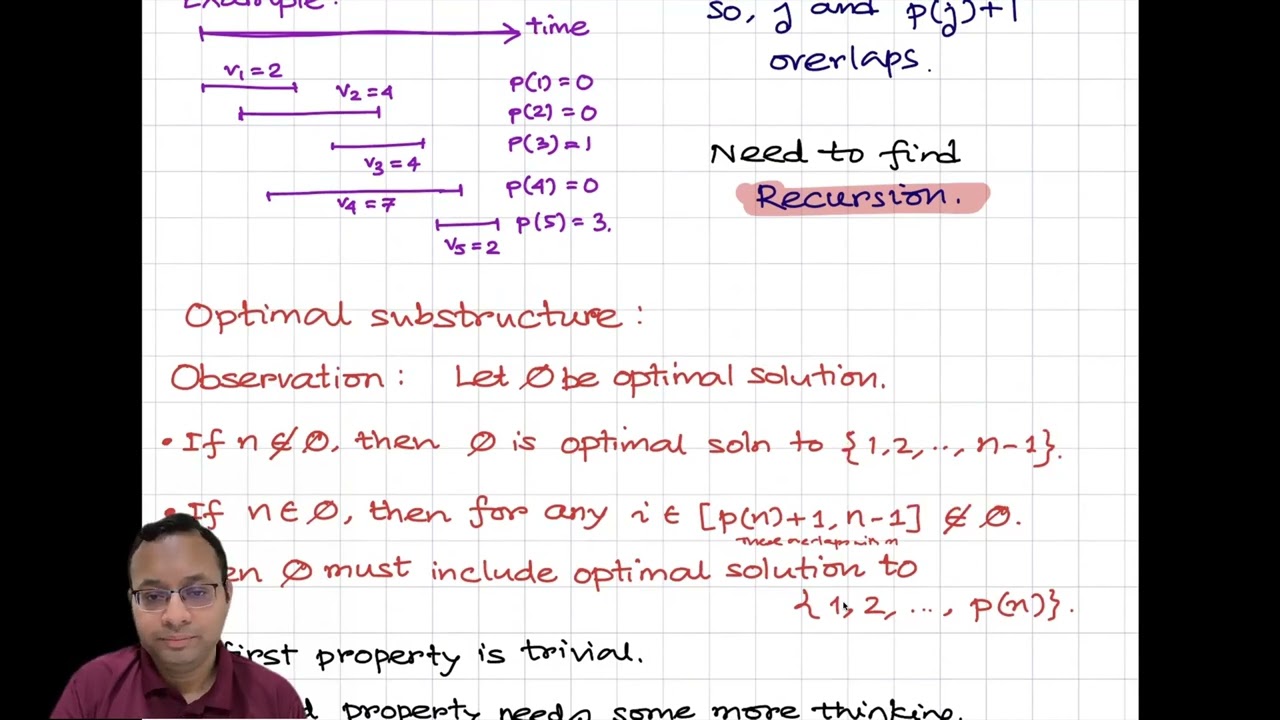 Example:
time
v1 = 2
v2 = 4
v3 = 4
v4 = 7
v5 = 2
P(1) = 0
P(2) = 0
P(3) = 1
P(4) = 0
P(5) = 3.
so, j and p(j)+1
overlaps.
Need to find
Recursion.
Optimal substructure:
Observation: Let Ø be optimal solution.
• If n ∉ Ø, then Ø is optimal soln to {1,2,..,n-1}.
• If n ∈ Ø, then for any i ∈ [p(n)+1, n-1] ∉ Ø.
These overlaps with n
Ø must include optimal solution to
{1, 2, ..., p(n)}.
first property is trivial.
property needs some more thinking.